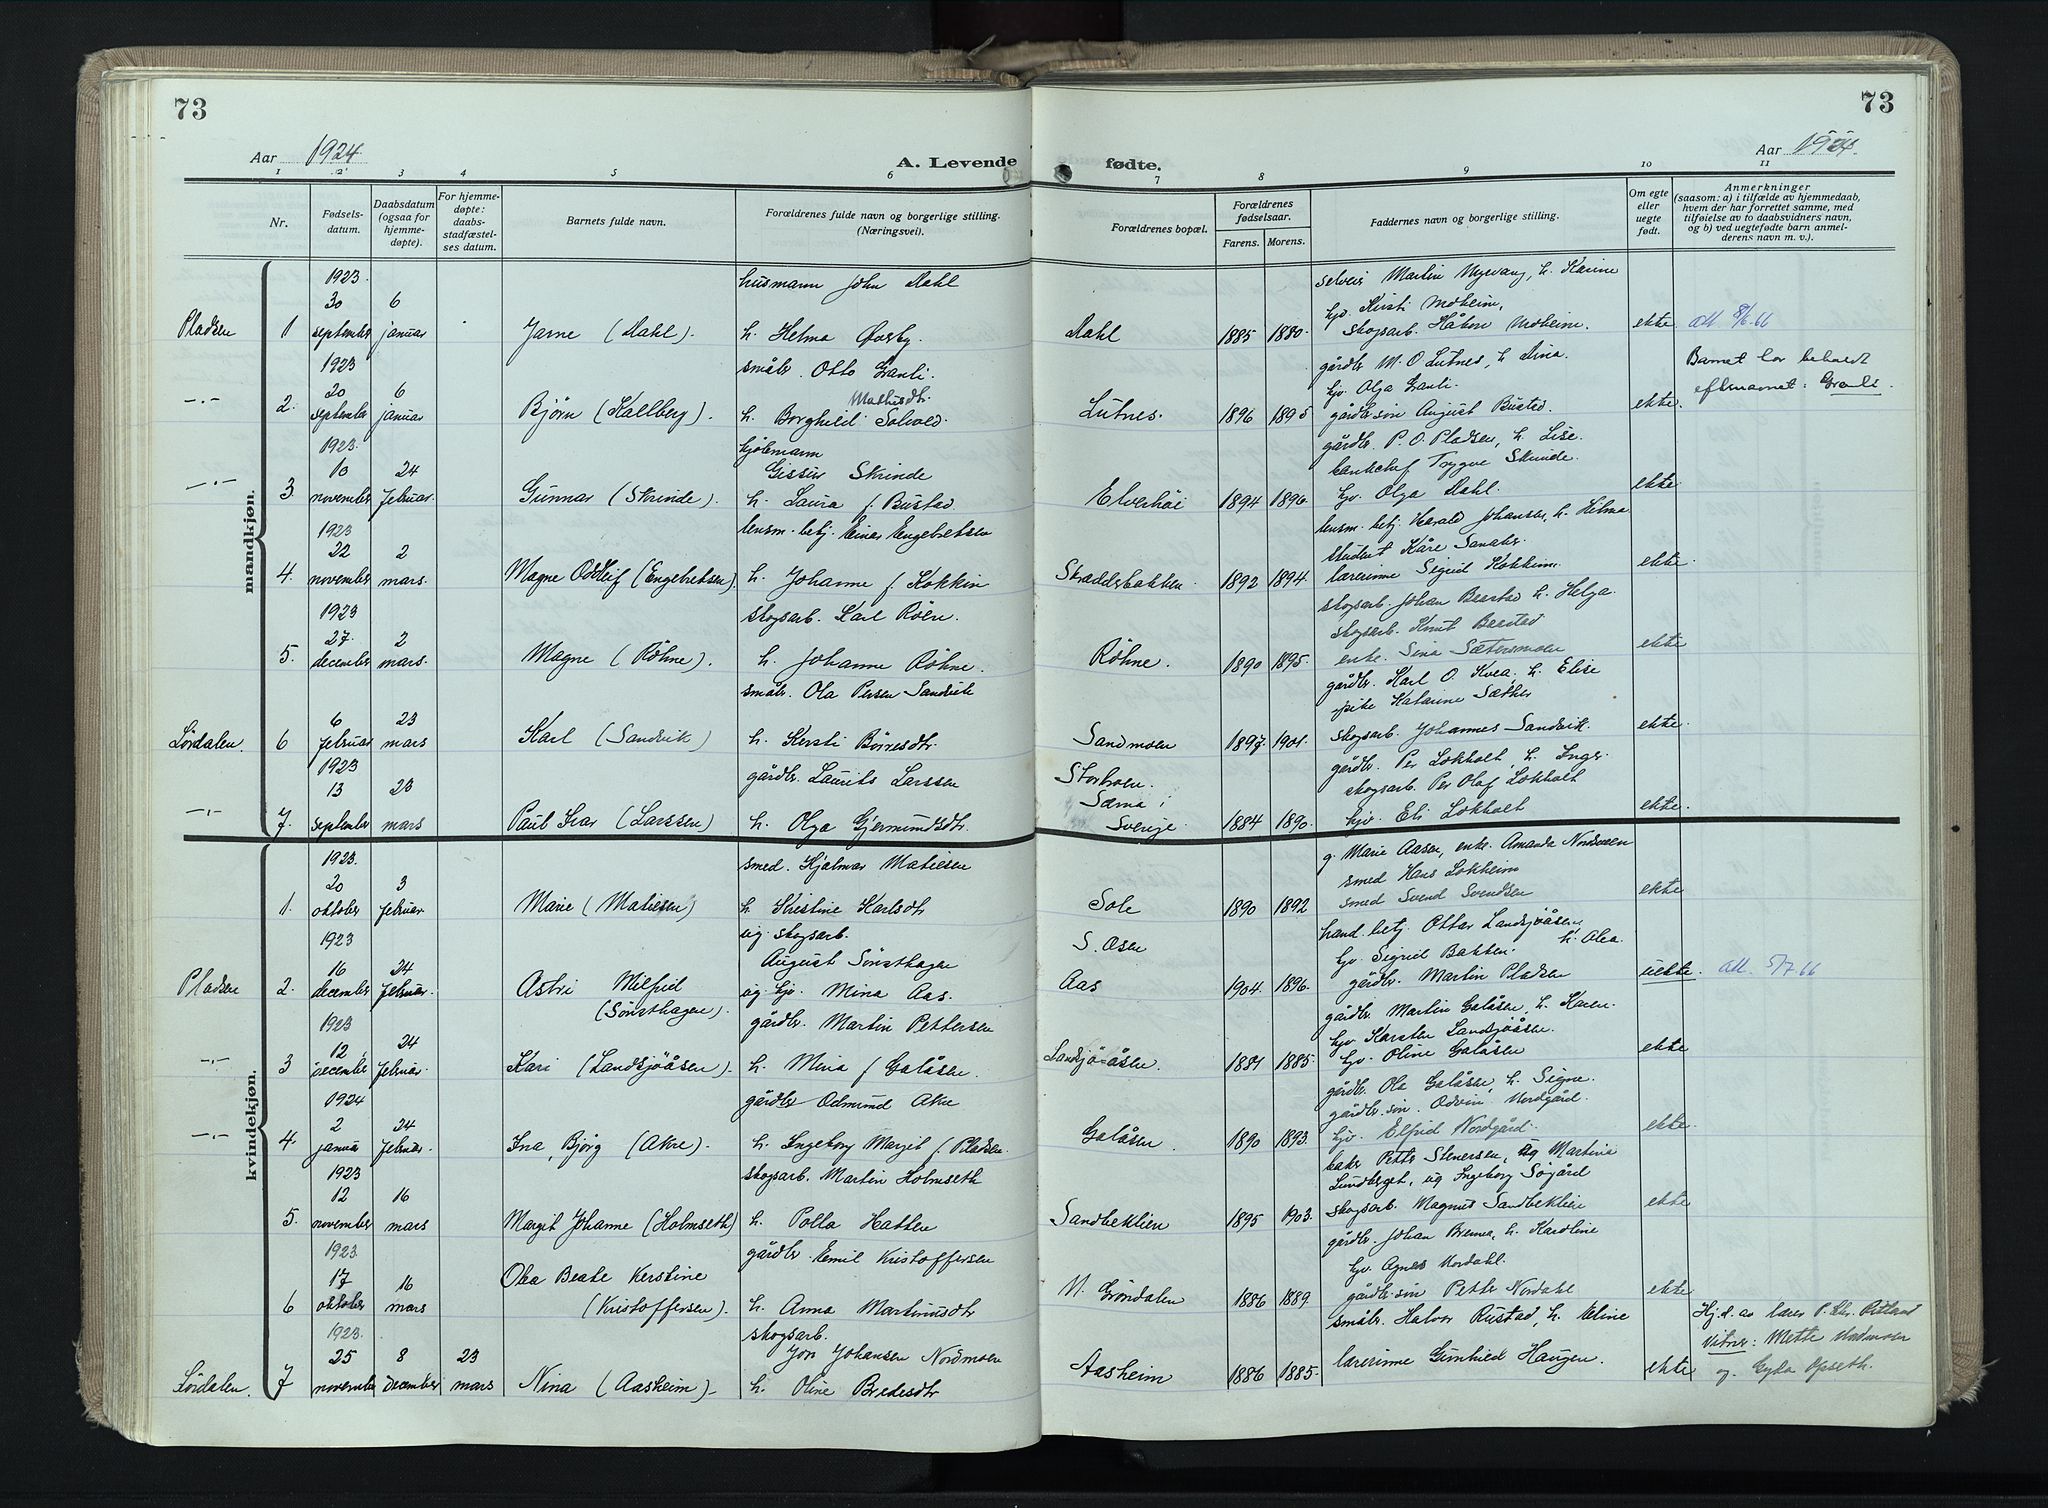 73
73
Aar 1924
A. Levende fødte.
Aar 1924.
1 2 3 4 5 6 7 8 9 10 11
Nr.
Fødsels-
datum.
Daabsdatum
(ogsaa for
hjemme-
døpte).
For hjemme-
døpte:
daabs-
stadfæstel-
ses datum.
Barnets fulde navn.
Forældrenes fulde navn og borgerlige stilling.
(Næringsvei).
Forældrenes bopæl.
Forældrenes
fødselsaar.
Farens. Morens.
Faddernes navn og borgerlige stilling.
Om egte
eller
uegte
født.
Anmerkninger
(saasom: a) i tilfælde av hjemmedaab,
hvem der har forrettet samme, med
tilføielse av to daabsvidners navn,
og b) ved uegtefødte barn anmel-
derens navn m. v.).
mandkjøn.
1923.
30 6
Pladsen 1 september januar
Jarne (Dahl).
husmann John Dahl
h. Helma Øvsby.
Dahl 1885 1880.
selveir Martin Nyvang, h. Karine
hjv. Kirsti Moheim,
skogsarb. Håkon Moheim.
ekte all 8/6.66
1923
20 6
-"- 2. september januar
Bjørn (Kallberg).
småbr. Otto Granli.
Mathisdtr.
h. Borghild Solvold.
Lutnes. 1896 1895
gårdbr M. O Lutnes, h Dina.
hjv. Olga Granli.
gårdbr.søn August Bustad.
ekte.
Barnet har beholdt
efternavnet: Granli.
1923.
10 24
-"- 3. november februar.
Gunnar (Skrinde).
kjøbmann
Gisser Skrinde
h. Laura f. Bustad
Elverhøi 1894 1896.
gårdbr. P. O. Pladsen, h. Lise.
bankchef Trygve Skrinde.
hjv. Olga Dahl.
ekte.
1923
22 2
4. november mars.
Magne Oddleif (Engebretsen).
lensm. betj. Einar Engebretsen
h. Johanne f. Kokkin
Skrædderbakken. 1892 1894
lensm. betj. Harald Johansen, h. Helma
student Kåre Sanaker.
lærerinne Sigrid Kokkin.
ekte.
1923
27. 2
5. december mars.
Magne (Røhne).
skogsarb. Karl Røhn.
h. Johanne Røhne.
Røhne. 1890 1895.
skogsarb. Johan Bærstad h. Helga.
skogsarb. Knut Bærstad
enke. Sina Sætersmoen
ekte
6 23
Sørdalen. 6 februar mars.
Karl (Sandvik)
småbr. Ola Persen Sandvik
h. Kersti Børresdtr.
Sandmoen 1897. 1901.
gårdbr. Karl O. Kvea, h. Elise
pike Katarine Sæther
skogsarb. Johannes Sandvik.
ekte.
1923
13 23
-"- 7. september mars.
Paul Ivar (Larssen)
gårdbr. Laurits Larssen
h. Olga Gjermundsdtr.
Storhoen.
Særna i
Sverige 1884 1890.
gårdbr. Per Lokholt, h. Inger.
skogsarb. Per Olof Lokholt
hjv. Eli Lokholt
ekte.
kvindekjøn.
1923.
20 3
1. oktober februar.
Marie (Matiesen)
smed. Hjalmar Matiesen
h. Kristine Karlsdtr
Sole 1890 1892
g. Marie Aasen, enke. Amanda Nordmoen
smed Hans Lokheim
smed Svend Svendsen
ekte
1923
16 24
Pladsen 2. december februar.
Astri Milfrid
(Sønsthagen).
ug. skogsarb.
August Sønsthagen
ug hjv. Mina Aas.
S. Osen
Aas 1904. 1896.
hand. betj. Ottar Landsjøåsen,
h. Alea.
hjv. Sigrid Bakken
gårdbr. Martin Pladsen
uekte. all. 5/7 66
1923
12, 24
-"- 3 december februar.
Kari (Landsjøåsen).
gårdbr. Martin Pettersen
h. Mina f. Galåsen
Landsjøåsen. 1881 1885.
gårdbr. Martin Galåsen, h. Karen.
hjv. Karsten Landsjøåsen.
hjv. Oline Galåsen
ekte
1924
2 24
-"- 4. januar februar.
Ina, Bjørg (Akre).
gårdbr Odmund Akre
h. Ingeborg Margit f. Pladsen.
Galåsen 1890 1893.
gårdbr. Ola Galåsen, h. Signe.
gårdbr. søn. Odvin. Nordgård.
hjv. Elfrid Nordgård.
ekte.
1923
12 16
5. november mars
Margit Johanne (Holmseth)
skogsarb. Martin Holmseth
h. Polla Hatten
Sandbeklien 1895 1903.
baker Petter Stenersen, ug Martina
Lundberget, ug Ingeborg Søgård
skogsarb. Magnus Sandbeklien
ekte
1923.
17 16
6 oktober mars
Olea Beate Kerstine
(Kristoffersen).
gårdbr. Emil Kristoffersen
h. Anna Martinusdtr
N. Grøndalen 1886 1889.
gårdbr. Johan Brenna, h. Karoline
hjv. Agnes Nordahl.
gårdbr.søn Petter Nordahl
ekte
1923.
25 8 23
Sørdalen. 7 november december mars
Nina (Aasheim)
skogsarb.
Jon Johansen Nordmoen
h. Oline Bredesdtr
Aasheim 1886 1885.
småbr. Halvor Rustad, h. Eline
lærerinne Gunhild Haugen.
ekte
Hj.d. av lærer P. Chr.
Vitner: Mette Nordmoen
og. Gyda Opseth.